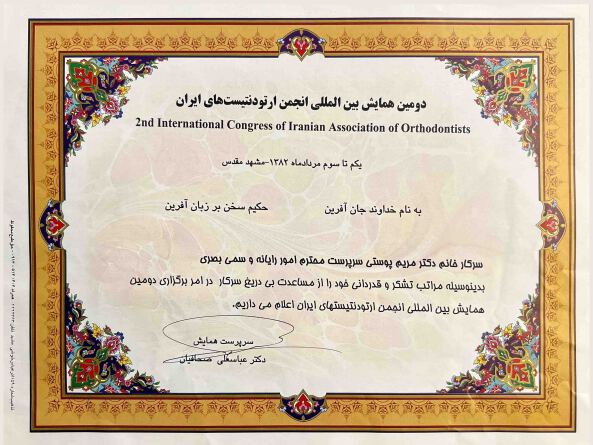 دومین همایش بین المللی انجمن ارتودنتیست‌های ایران
2nd International Congress of Iranian Association of Orthodontists
یکم تا سوم مردادماه ۱۳۸۲-مشهد مقدس
به نام خداوند جان آفرین حکیم سخن بر زبان آفرین
سرکار خانم دکتر مریم پوستی سرپرست محترم امور رایانه و سمی بصری
بدینوسیله مراتب تشکر و قدردانی خود را از مساعدت بی دریغ سرکار در امر برگزاری دومین
همایش بین المللی انجمن ارتودنتیستهای ایران اعلام می داریم.
سرپرست همایش
دکتر عباسعلی صحافیان